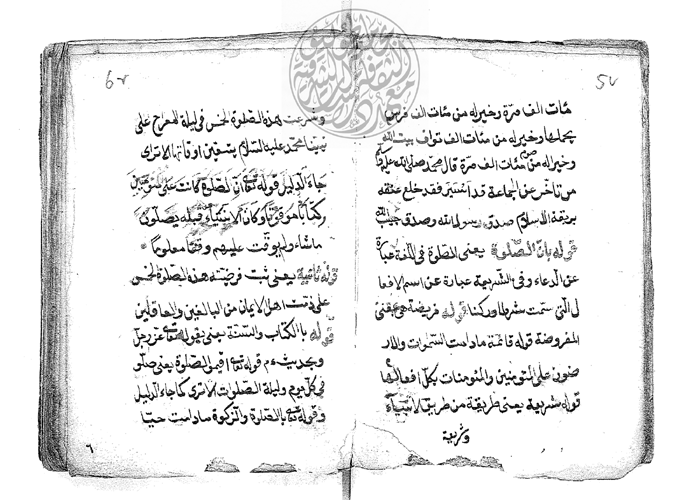 مئات الف مرة وخير له من مئات الف فرس
يحملها وخير له من مئات الف تواف بيت الله
وخير له من مئات الف مرة قال محمد صلى الله عليه
من تأخر عن الجماعة قد فقد خلع عنقه
بريقة الاسلام صدق رسول الله وصدق حبيب الله
قوله بان الصلوة يعنى الصلوة فى اللغة عبارة
عن الدعاء وفى الشريعة عبارة عن اسم الافعا
ل التى سمت شرطا وركنا قوله فريضة هى بمعنى
المفروضة قوله قائمة مادامت السموات والار
ضون على المؤمنين والمؤمنات بكل افعالها
قوله شريعة يعنى طريقة من طريق الانبياء
وشرعت
وشرعت هذه الصلوة الخمس فى ليلة المعراج على
نبينا محمد عليه السلام بتعيين اوقاتها الا ترى
جاء الدليل قوله تعالى ان الصلوة كانت على المؤمنين
كتابا موقوتا وكان الانبياء قبله يصلون
ماشاء ولم يوقت عليهم وقتا معلوما
قوله ثابتة يعنى ثبت فرضية هذه الصلوة الخمس
على ذمت اهل الايمان من البالغين والعاقلين
قوله بالكتاب والسنة يعنى بقوله تعالى عز وجل
وبحديث قوله تعالى اقيموا الصلوة يعنى صلو
فى كل يوم وليلة الصلوات الا ترى كما جاء الدليل
وقوله تعالى بالصلوة والزكوة مادامت حيا
٦